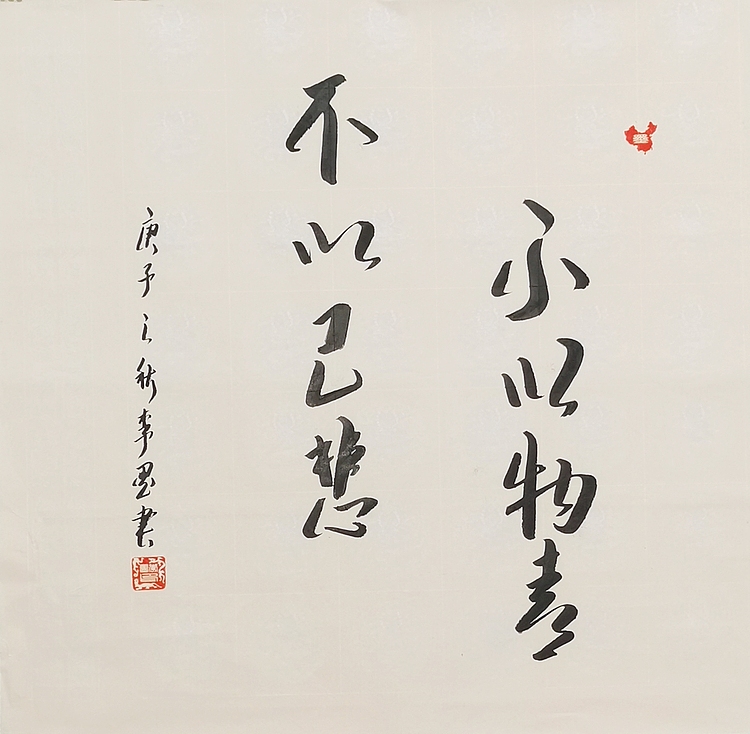 不以物喜
不以己悲
庚子之秋李書